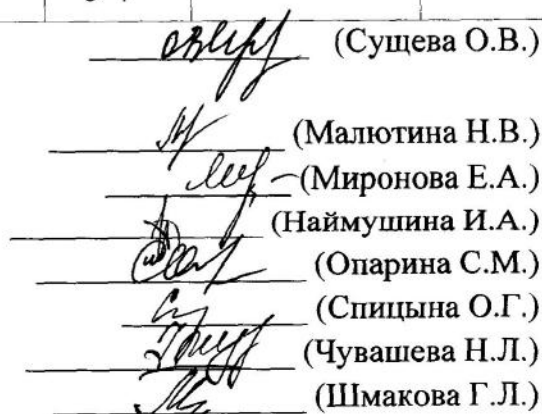 (Сущева О.В.)
(Малютина Н.В.)
(Миронова Е.А.)
(Наймушина И.А.)
(Опарина С.М.)
(Спицына О.Г.)
(Чувашева Н.Л.)
(Шмакова Г.Л.)